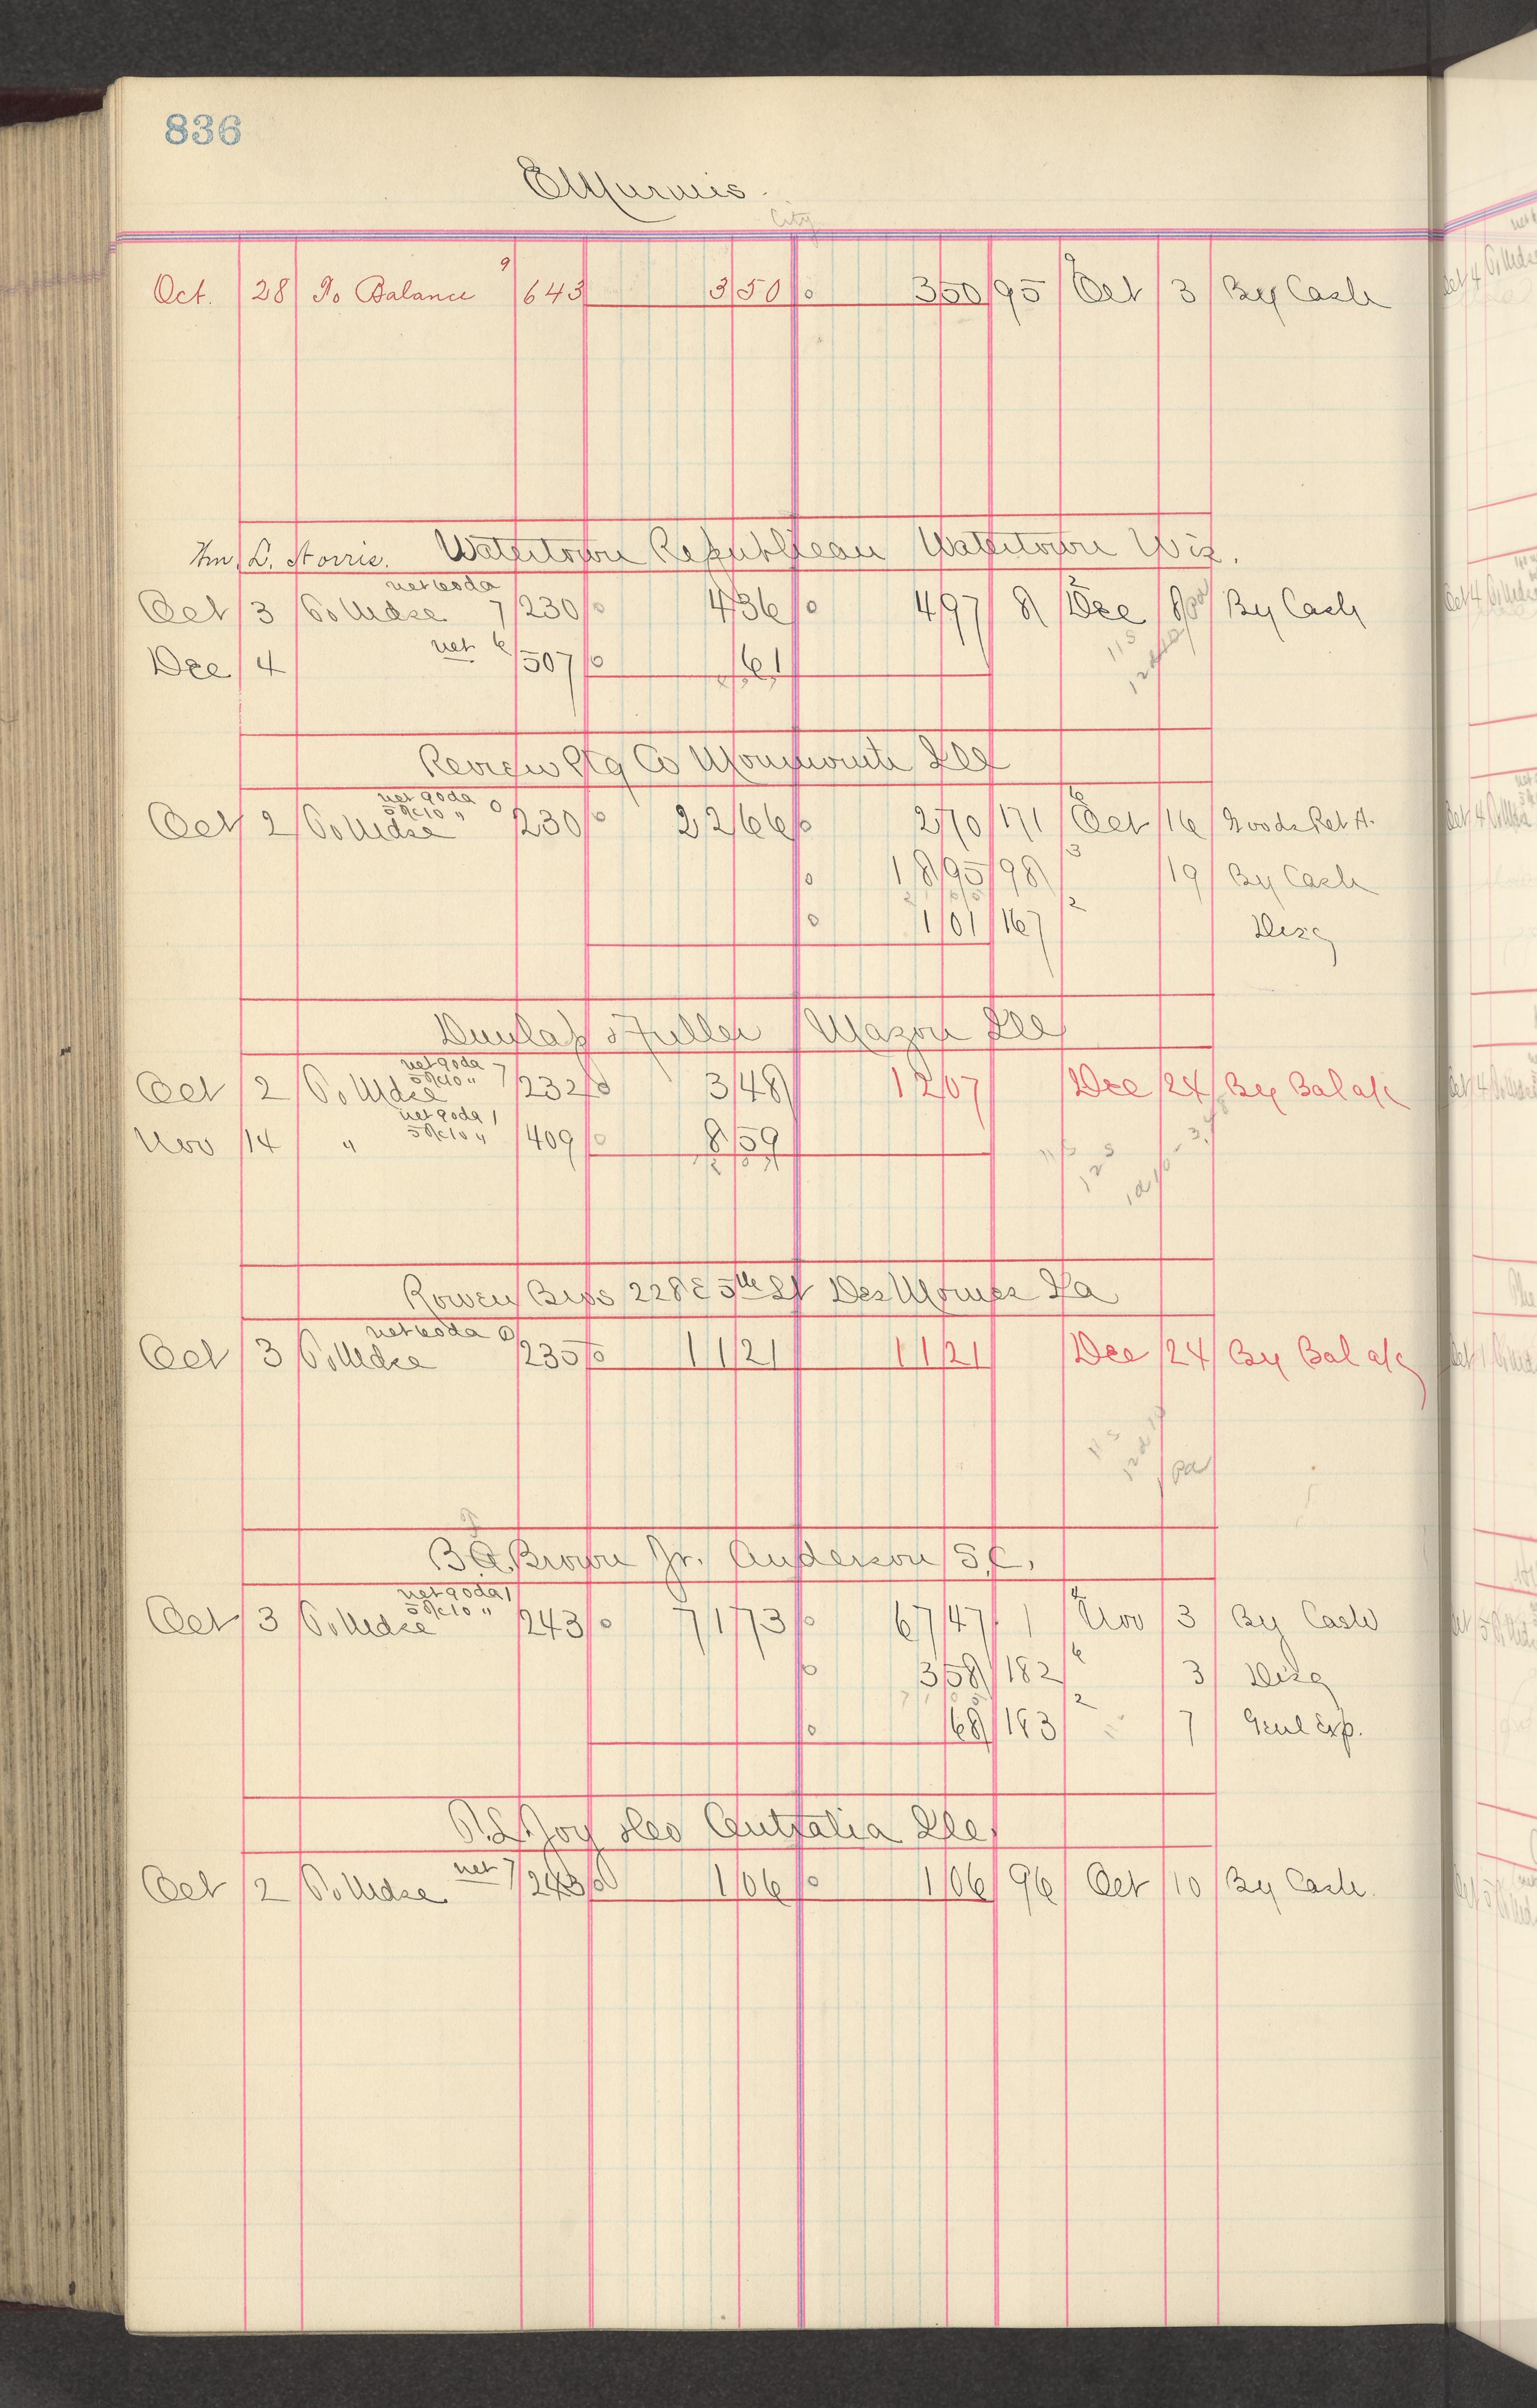 836
City
Oct. 28 To Balance 9 643 3 50 350 95 Oct 3 By Cash
Wm. D. Storris. Watertown Republican Watertown Wis.
net 60 da
Oct 3 To Mdse 7 230 4 36 4 97 81 Dec 8 By Cash
Dec 4 net 6 507 61
Review Ptg Co Monmouth Ill
net 90 da
5% 10 "
Oct 2 To Mdse 230 22 66 2 70 171 Oct 16 Goods Ret'd.
18 95 98 19 By Cash
1 01 167 Disc
Dunlap & Fuller Mazon Ill
net 90 da
5% 10 "
Oct 2 To Mdse 7 232 3 48 12 07 Dec 24 By Bal a/c
net 90 da
5% 10 "
Nov 14 " 409 8 59
Rowen Bros 228 E 5th St Des Moines Ia
net 60 da
Oct 3 To Mdse 235 11 21 11 21 Dec 24 By Bal a/c
pd
B. A. Brown Jr. Anderson S.C.
net 90 da
5% 10 "
Oct 3 To Mdse 243 71 73 67 47 1 Nov 3 By Cash
3 58 182 3 Disc
68 183 7 Genl Exp.
Joy Centralia Ill
Oct 2 To Mdse net 7 243 1 06 1 06 96 Oct 10 By Cash.